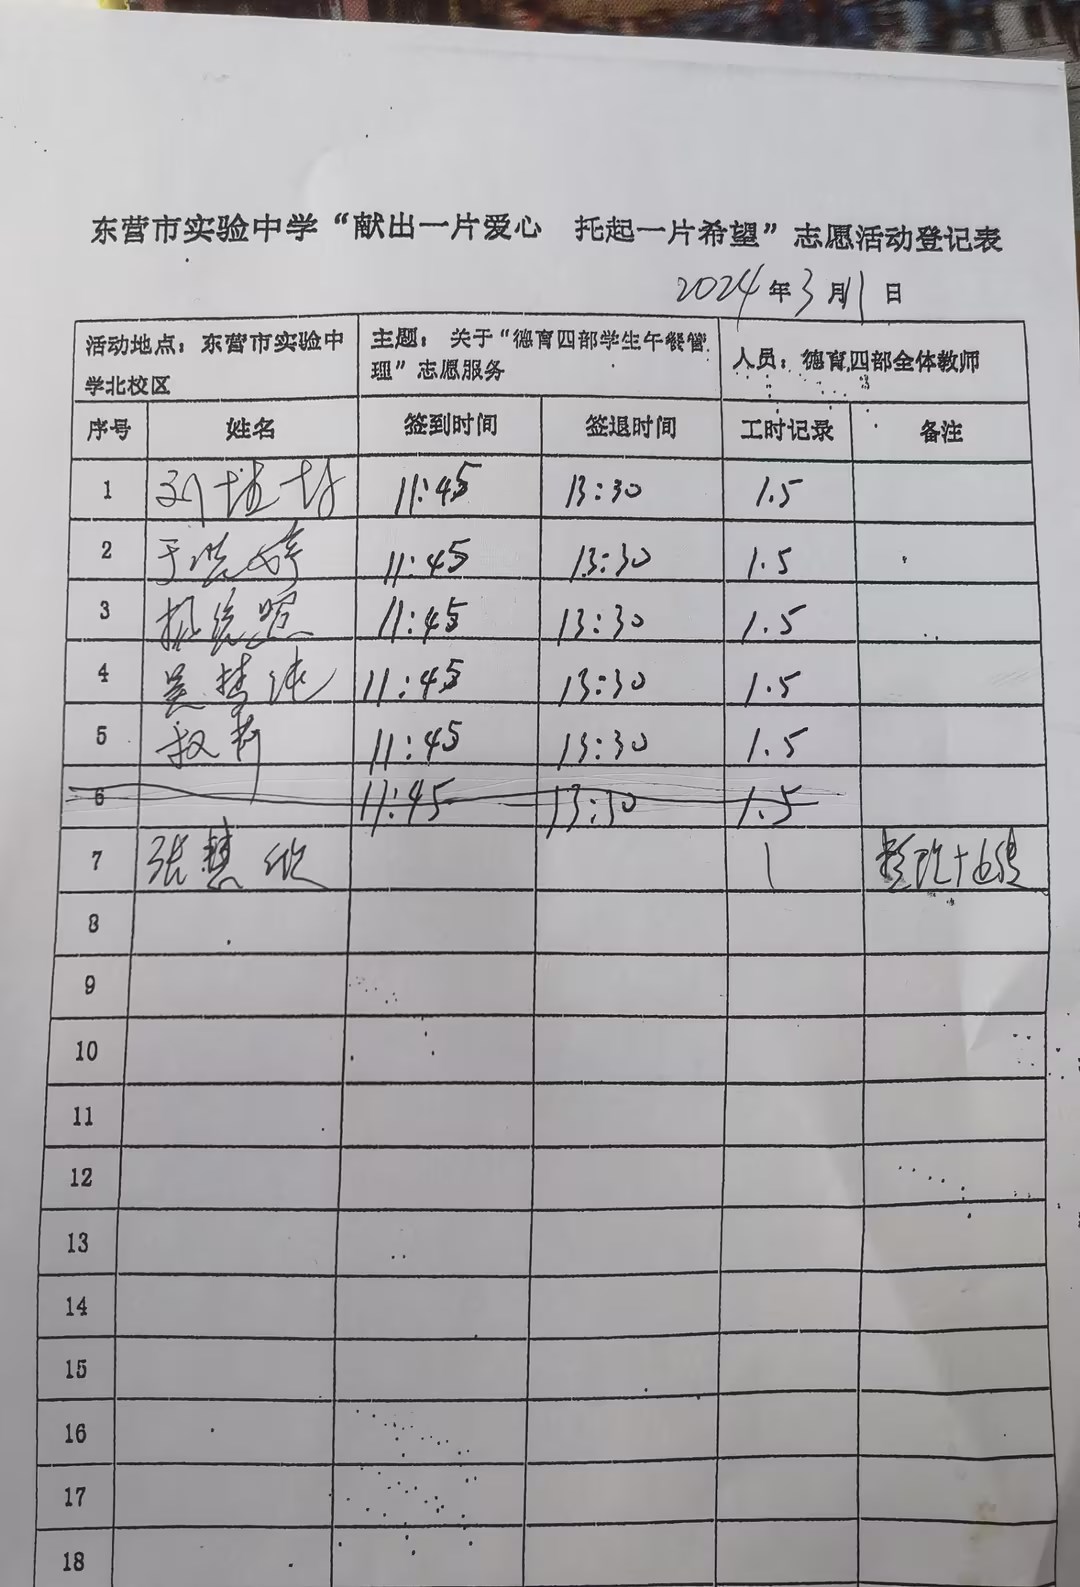 东营市实验中学“献出一片爱心 托起一片希望”志愿活动登记表
2024年3月11日
活动地点：东营市实验中学北校区 主题：关于“德育四部学生午餐管理”志愿服务 人员：德育四部全体教师
序号 姓名 签到时间 签退时间 工时记录 备注
1 刘 11:45 13:30 1.5
2 于洪婷 11:45 13:30 1.5
3 11:45 13:30 1.5
4 吴梦 11:45 13:30 1.5
5 11:45 13:30 1.5
6 11:45 13:30 1.5
7 张慧欣 1
8
9
10
11
12
13
14
15
16
17
18